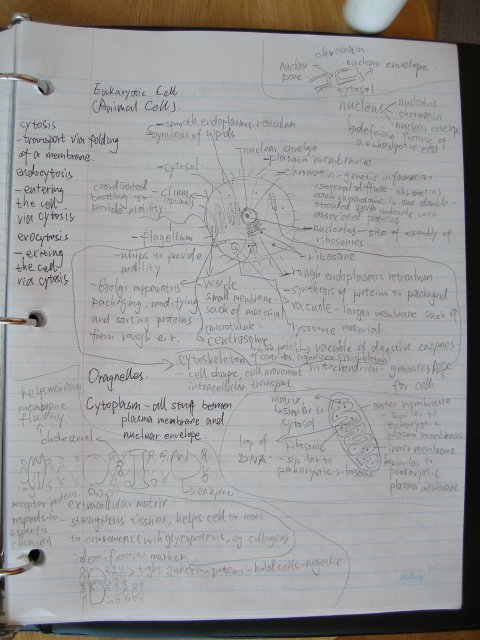 chromatin
nuclear pore
nuclear envelope
cytosol
nucleus
nucleolus
chromatin
nuclear envelope
defining feature of
a eukaryotic cell
Eukaryotic Cell
(Animal Cell)
cytosis
- transport via folding
of a membrane.
endocytosis
- entering
the cell
via cytosis
exocytosis
- exiting
the cell
via cytosis
- smooth endoplasmic reticulum
synthesis of lipids
nuclear envelope
- plasma membrane
- cytosol
- chromatin - genetic information
several diffuse chromatins
each chromosome is one double-
stranded DNA molecule with
associated proteins
coordinated
beating to
provide motility
- cilium
- nucleolus - site of assembly of
ribosomes
- flagellum
- whips to provide
motility
- ribosome
- rough endoplasmic reticulum
- synthesis of proteins to
- Golgi apparatus
packaging, modifying
and sorting proteins
from rough e.r.
vesicle
small membrane
sack of material
microtubule
centrosome
- vacuole - larger membrane sack of
material
lysosome
vacuole of digestive enzymes
mitochondrion - generates ATP
for cells
cytoskeleton
cell shape, cell movement
intracellular transport
Organelles
Cytoplasm - all stuff between
plasma membrane and
nuclear envelope.
helps maintain
membrane
fluidity
cholesterol
matrix
similar to
cytosol
loop of
DNA
ribosome
- similar to
prokaryotic ribosome
outer membrane
- similar to
eukaryotic
plasma membrane
inner membrane
similar to
prokaryotic
plasma membrane
enzyme
receptor protein
responds to
a specific
chemical
extracellular matrix
- strengthens tissues, helps cell to react
to environment (with glycoproteins, eg. collagen)
identification marker
tight junction proteins - hold cells together